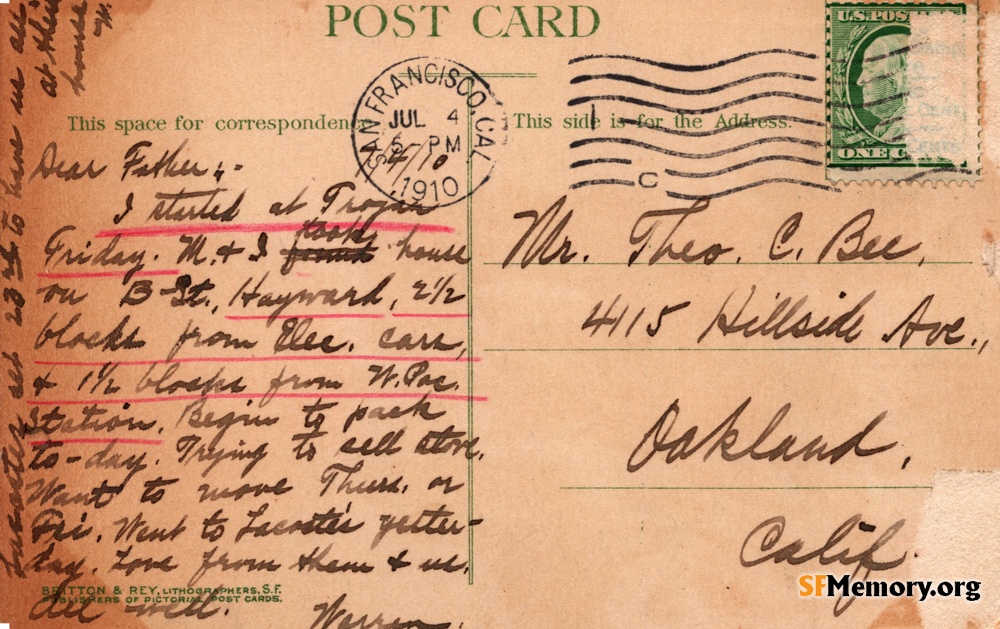 POST CARD
This space for correspondence
This side is for the Address.
SAN FRANCISCO, CAL
JUL 4
5 - PM
1910
U.S. POST
ONE C
7/4/10
Dear Father:-
I started at Trojan
Friday. M. & I took found house
on B-St., Hayward, 2 1/2
blocks from Elec. cars,
& 1 1/2 blocks from W. Pac.
Station. Begin to pack
to-day. Trying to sell stove.
Want to move Thurs. or
Fri. Went to Lacoste's yester-
day. Love from them & us.
All well. Warren.
set 23rd to have us all
at their
house
W.
Mr. Theo. C. Bee,
4115 Hillside Ave.,
Oakland,
Calif.
BRITTON & REY, LITHOGRAPHERS, S.F.
PUBLISHERS OF PICTORIAL POST CARDS.
SFMemory.org